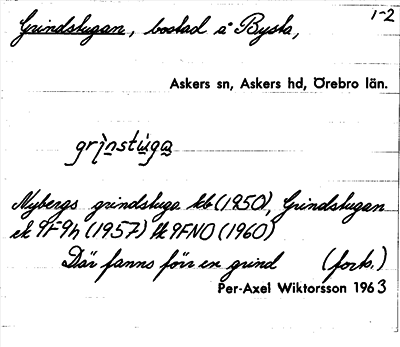 1-2
Grindstugan, bostad å Bysta,
Askers sn, Askers hd, Örebro län.
grìnstùga
Nybergs grindstuga kb (1850), Grindstugan
ek 9F9h (1957) tk 9FNO (1960)
Där fanns förr en grind (forts.)
Per-Axel Wiktorsson 1963